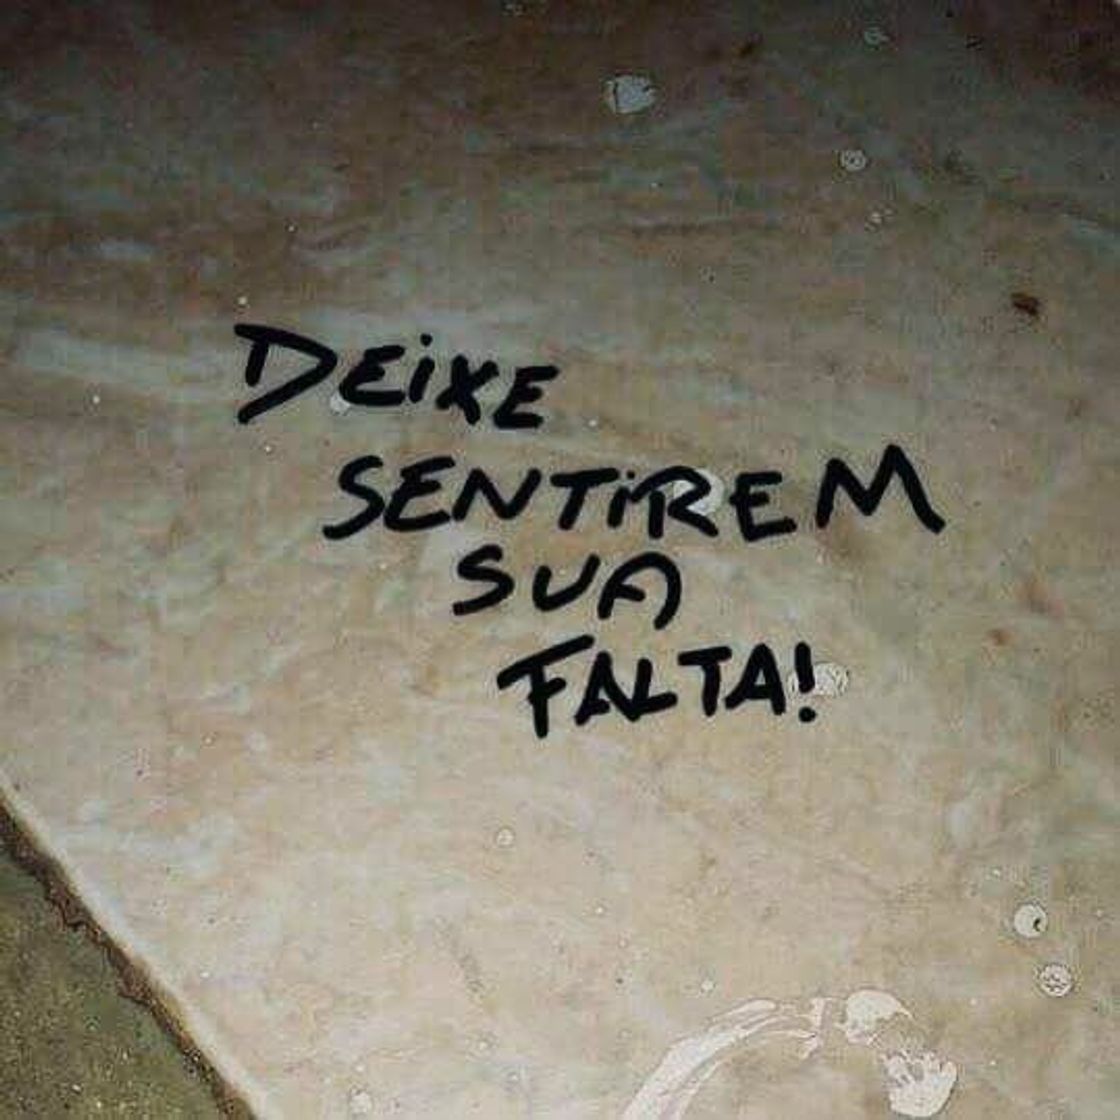 DEiXE
SENTiREM
SUA
FALTA!